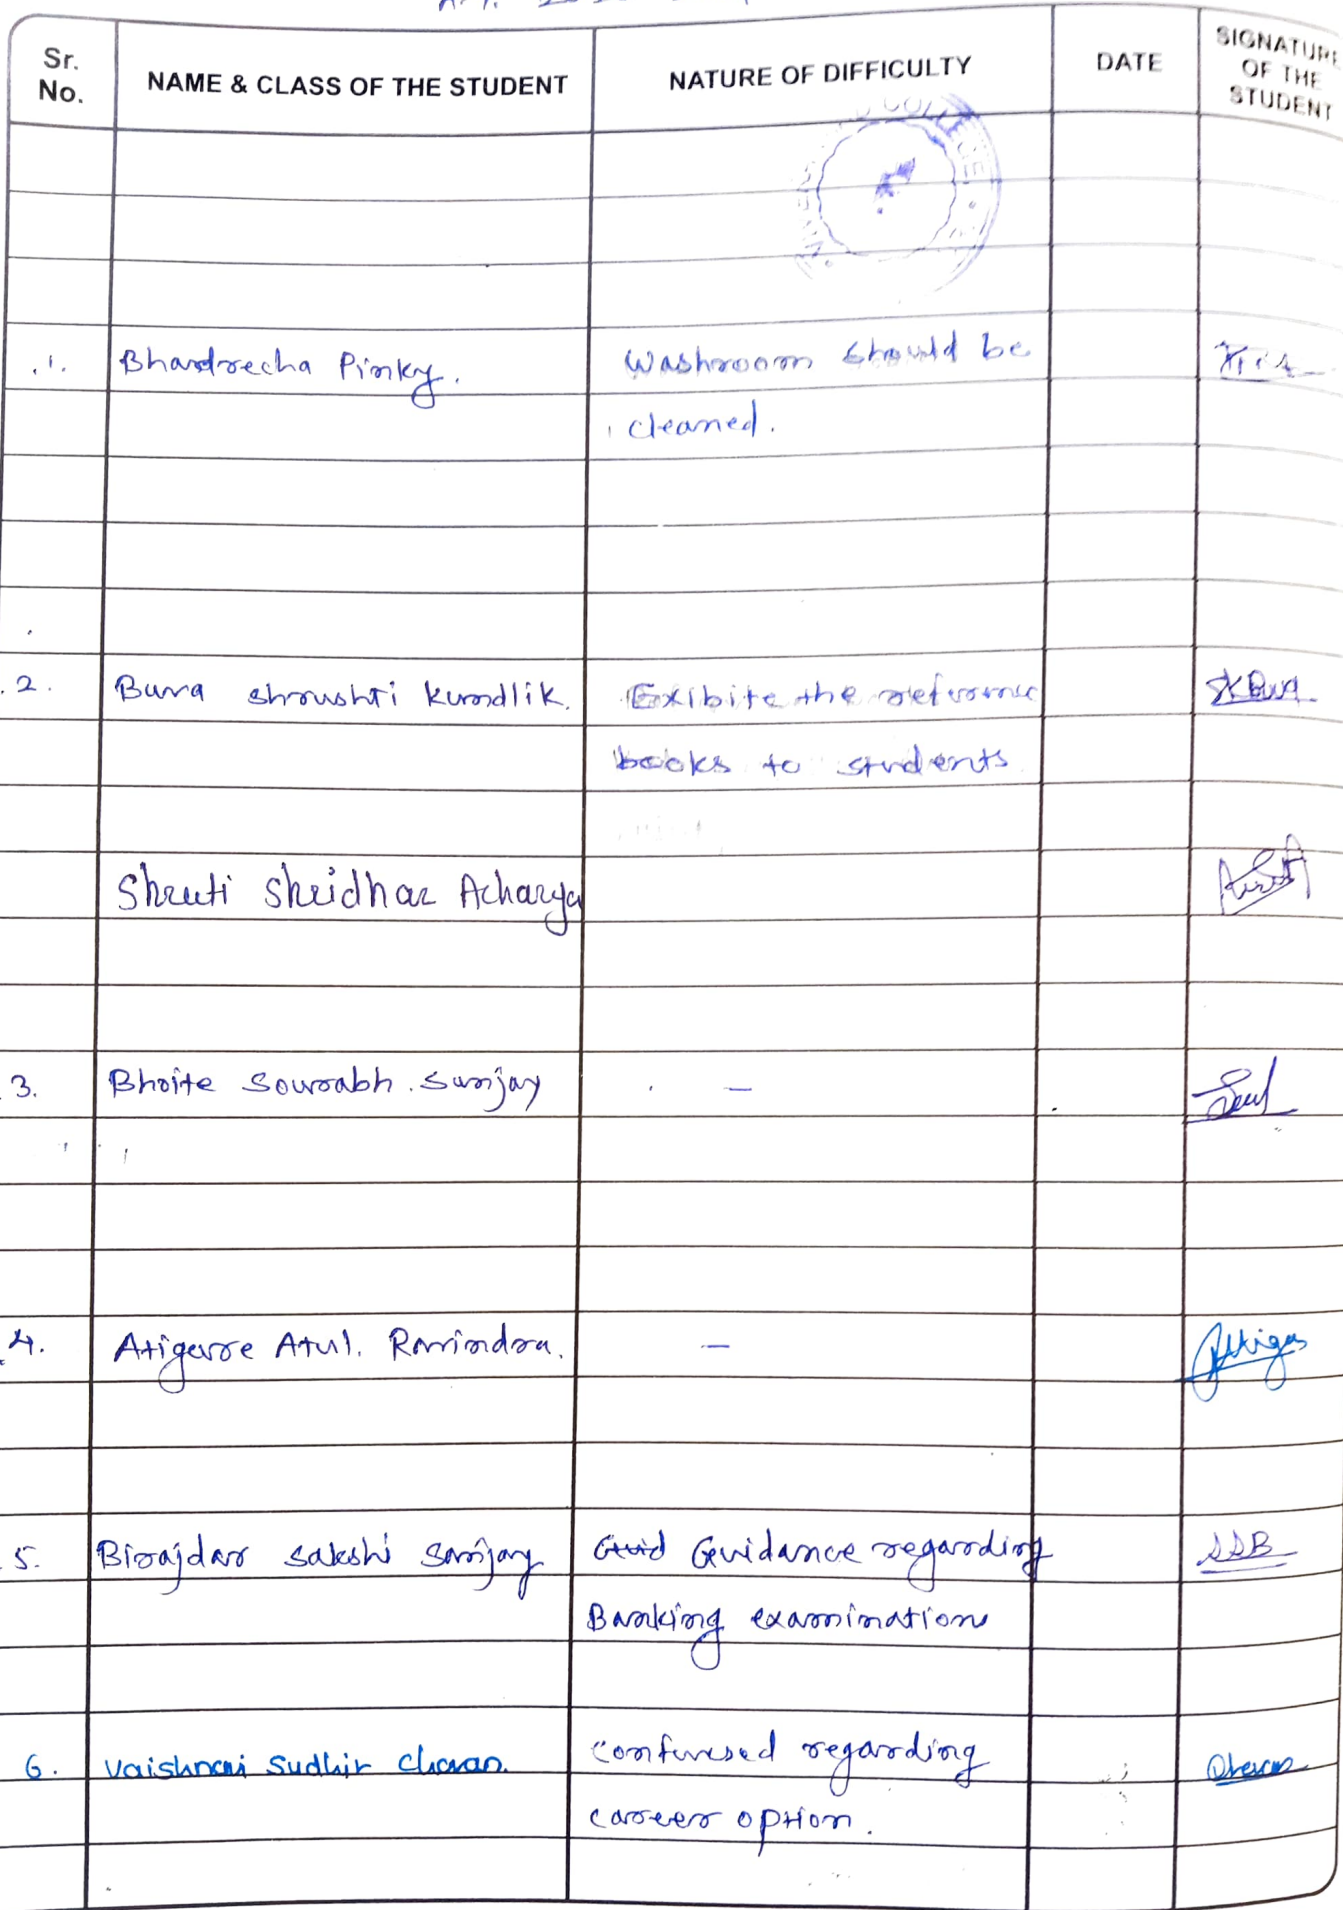 Sr. No.
NAME & CLASS OF THE STUDENT
NATURE OF DIFFICULTY
DATE
SIGNATURE OF THE STUDENT
COLLEGE
1. Bhandrecha Pinky. Washroom should be
cleaned.
2. Bura shrushti kundlik. Exibite the reference
books to students
Shruti Shridhar Acharya
3. Bhoite Sourabh. Sanjay –
4. Atigare Atul. Ravindra. –
5. Birajdar Sakshi Sanjay Guid Guidance regarding SSB
Banking examination
6. Vaishnavi Sudhir Chavan. confuresed regarding
career option.